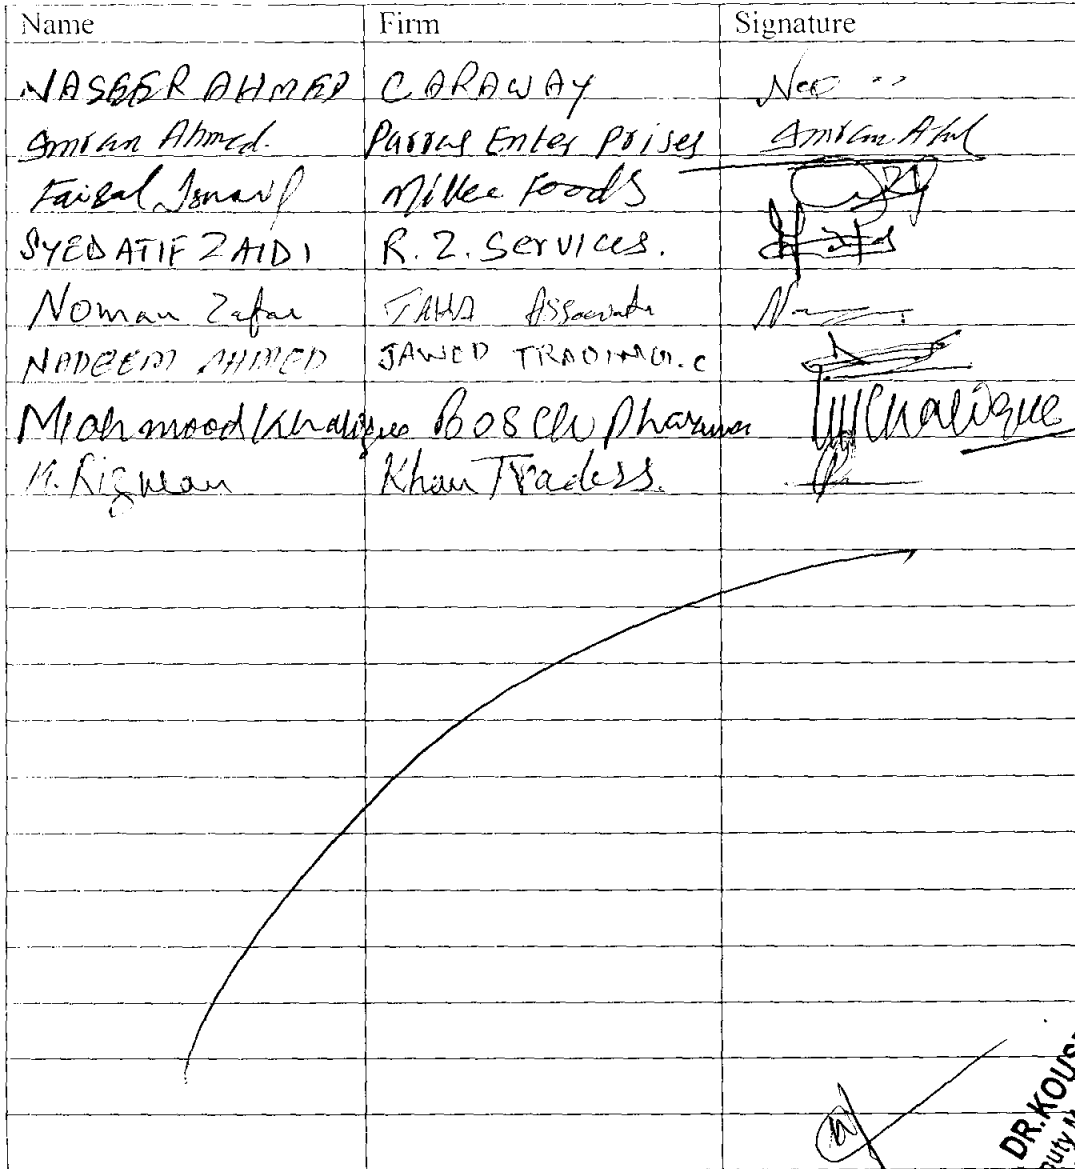 Name Firm Signature
NASEER AHMED CARAWAY
Imran Ahmed. Parras Enter prises Imran
Faisal Ismail Millee Foods
SYED ATIF ZAIDI R.Z. Services.
Noman Zafar TAHA Associate
NADEEM AHMED JAWED TRADING.C
Mahmood Khalique BOSCH Pharma Khalique
M. Rizwan Khan Traders.
DR.KOUS